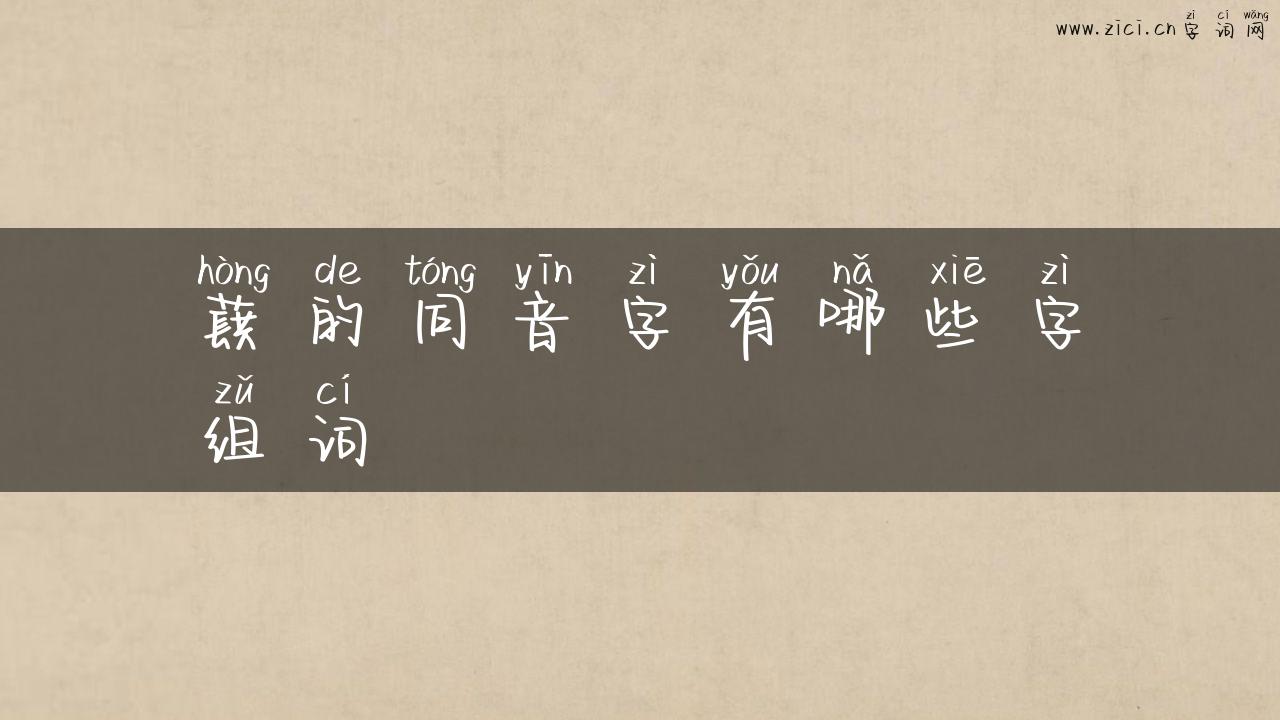 zì cí wǎng
www.zici.cn 字词网
hòng de tóng yīn zì yǒu nǎ xiē zì
蕻的同音字有哪些字
zǔ cí
组词